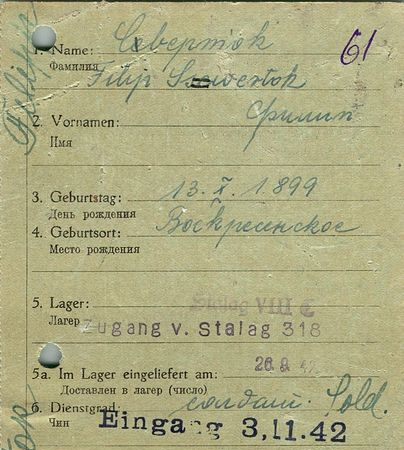 61
1. Name: Северток
Фамилия Filip Szewertok
2. Vornamen: Филип
Имя
3. Geburtstag: 13. X. 1899
День рождения
4. Geburtsort: Воскресенское
Место рождения
5. Lager: Stalag VIII C
Лагер Zugang v. Stalag 318
5a. Im Lager eingeliefert am: 26 9 42
Доставлен в лагер (число)
6. Dienstgrad: солдат. Sold.
Чин Eingang 3.11.42